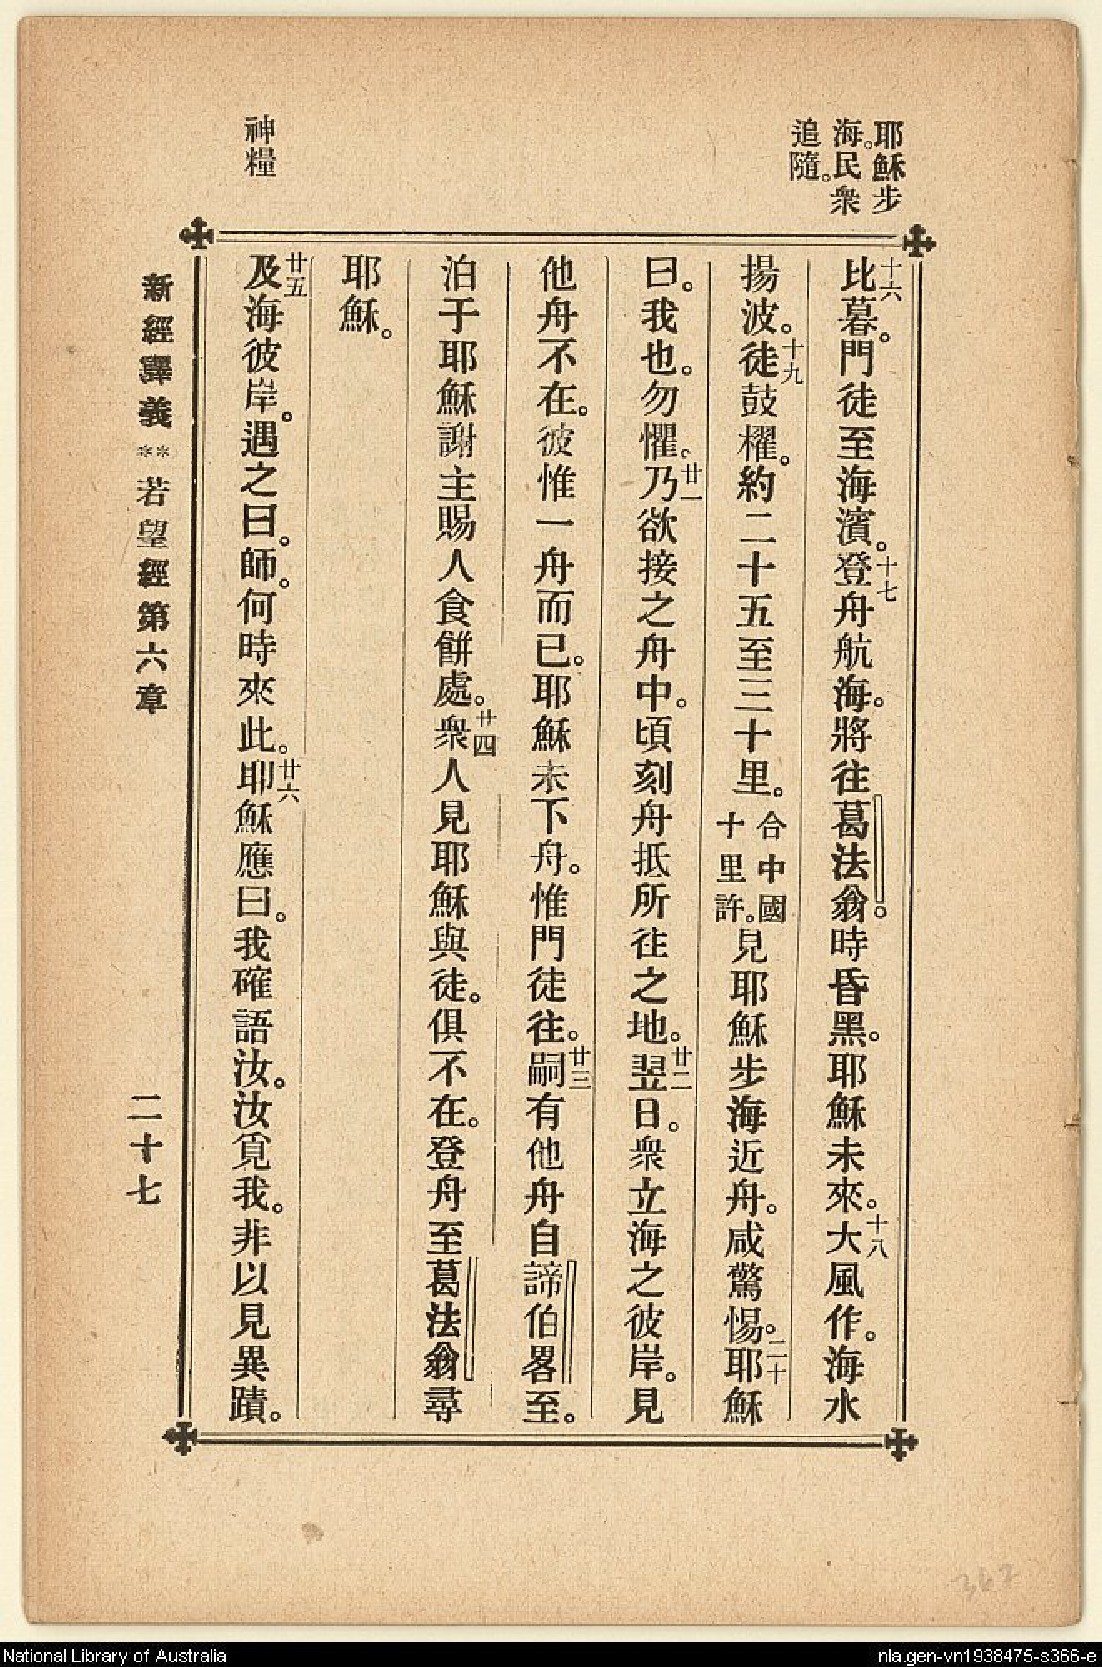 耶穌步
海。民衆
追隨。
神糧
十六比暮。門徒至海濱。十七登舟航海。將往葛法翁。時昏黑。耶穌未來。十八大風作。海水
揚波。十九徒鼓櫂。約二十五至三十里。合中國十里許。見耶穌步海近舟。咸驚惕。二十耶穌
曰。我也。勿懼。廿一乃欲接之舟中。頃刻舟抵所往之地。廿二翌日。衆立海之彼岸。見
他舟不在。彼惟一舟而已。耶穌未下舟。惟門徒往。廿三嗣有他舟自諦伯畧至。
泊于耶穌謝主賜人食餅處。廿四衆人見耶穌與徒。俱不在。登舟至葛法翁尋
耶穌。
廿五及海彼岸。遇之曰。師。何時來此。廿六耶穌應曰。我確語汝。汝覓我。非以見異蹟。
新經譯義**若望經第六章
二十七
367
National Library of Australia
nla.gen-vn1938475-s366-e